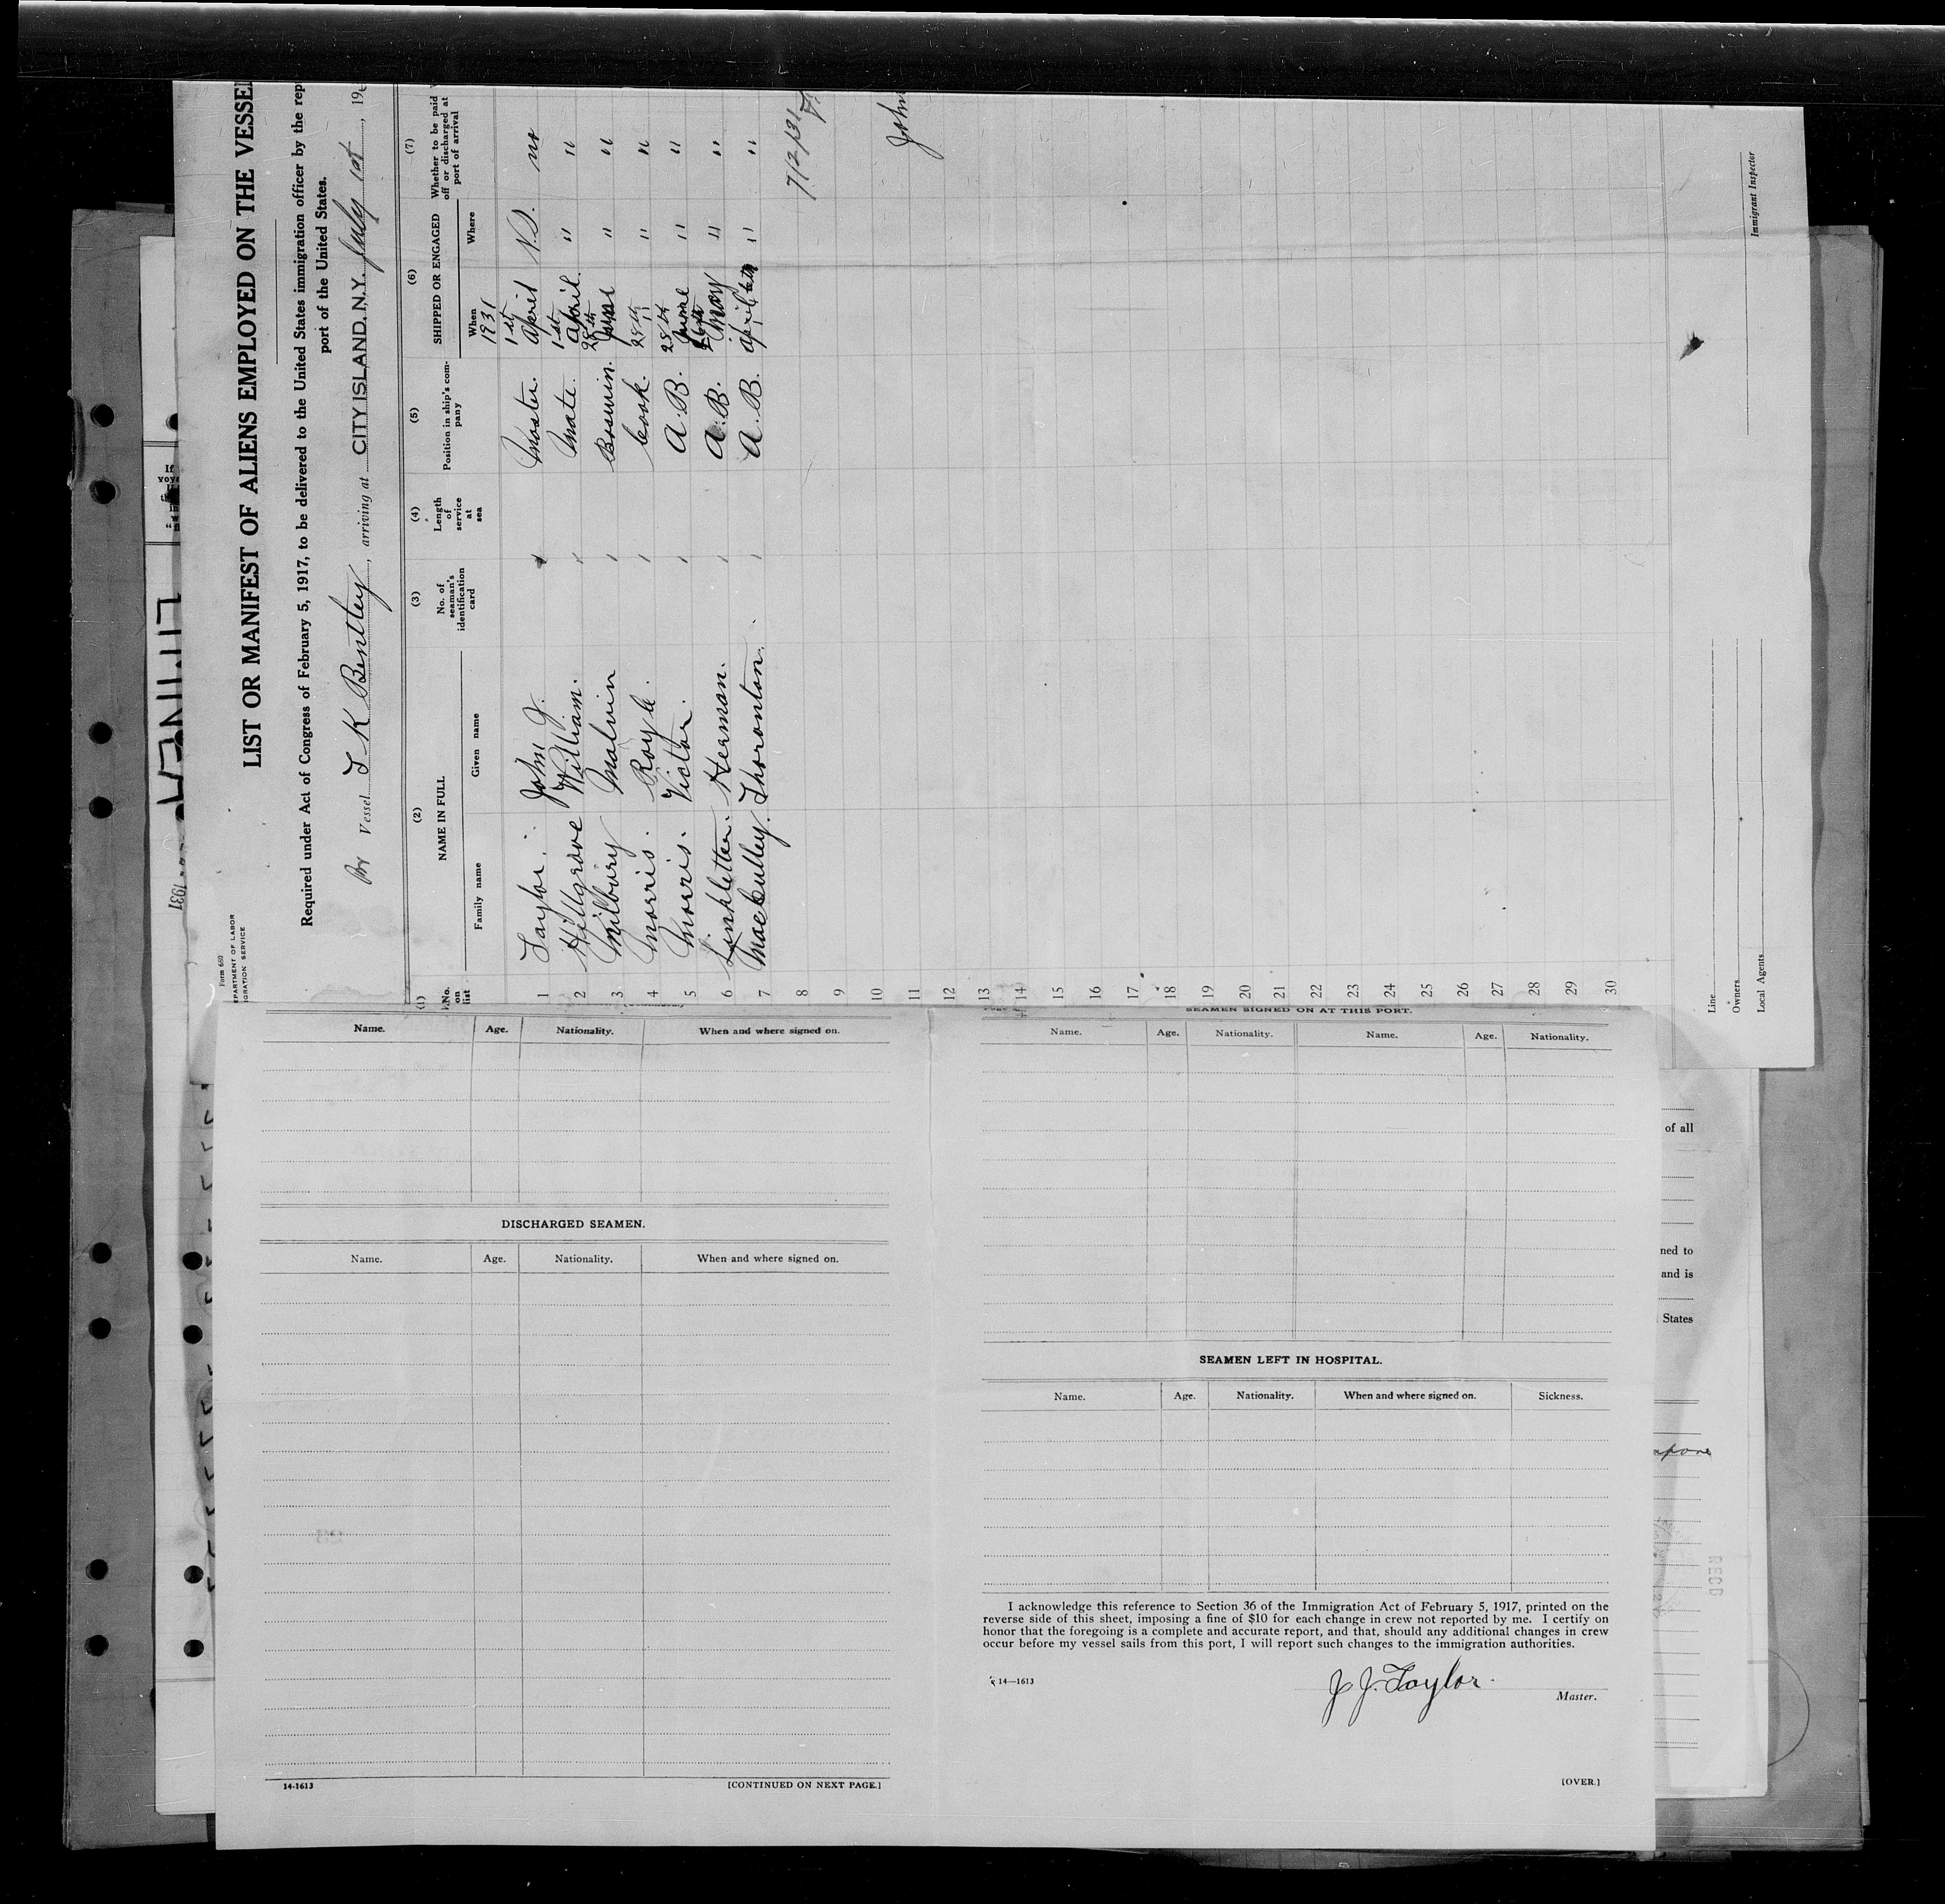 Form 680
LIST OR MANIFEST OF ALIENS EMPLOYED ON THE VESSEL
Required under Act of Congress of February 5, 1917, to be delivered to the United States immigration officer by the rep
port of the United States.
Br Vessel L K Bentley, arriving at CITY ISLAND, N.Y. July 1st, 19
(1) (2) (3) (4) (5) (6) (7)
No. on list NAME IN FULL No. of seaman's identification card Length of service at sea Position in ship's company SHIPPED OR ENGAGED Whether to be paid off or discharged at port of arrival
Family name Given name When Where
1931
1 Taylor. John J. Master. 1st April N.S. no
2 Hillgrove William. Mate. 1st April. " "
3 Milbury Malvin Boswin. 28th June " "
4 Morris. Royle. Cook. 28th " " "
5 Morris. Victor. A.B. 28th June " "
6 Linkletter. Herman. A.B. May " "
7 MacCulley. Thoronton. A.B. April 6th " "
8 7/2/31
9
10
11 John
12
13
14
15
16
17
18
19
20
21
22
23
24
25
26
27
28
29
30
Line
Owners
Local Agents
Immigrant Inspector
Name. Age. Nationality. When and where signed on.
DISCHARGED SEAMEN.
Name. Age. Nationality. When and where signed on.
14-1613
[CONTINUED ON NEXT PAGE.]
SEAMEN SIGNED ON AT THIS PORT.
Name. Age. Nationality. Name. Age. Nationality.
SEAMEN LEFT IN HOSPITAL.
Name. Age. Nationality. When and where signed on. Sickness.
I acknowledge this reference to Section 36 of the Immigration Act of February 5, 1917, printed on the
reverse side of this sheet, imposing a fine of $10 for each change in crew not reported by me. I certify on
honor that the foregoing is a complete and accurate report, and that, should any additional changes in crew
occur before my vessel sails from this port, I will report such changes to the immigration authorities.
14—1613
J J. Taylor.
Master.
[OVER.]
of all
ned to
and is
States
RECD
1931